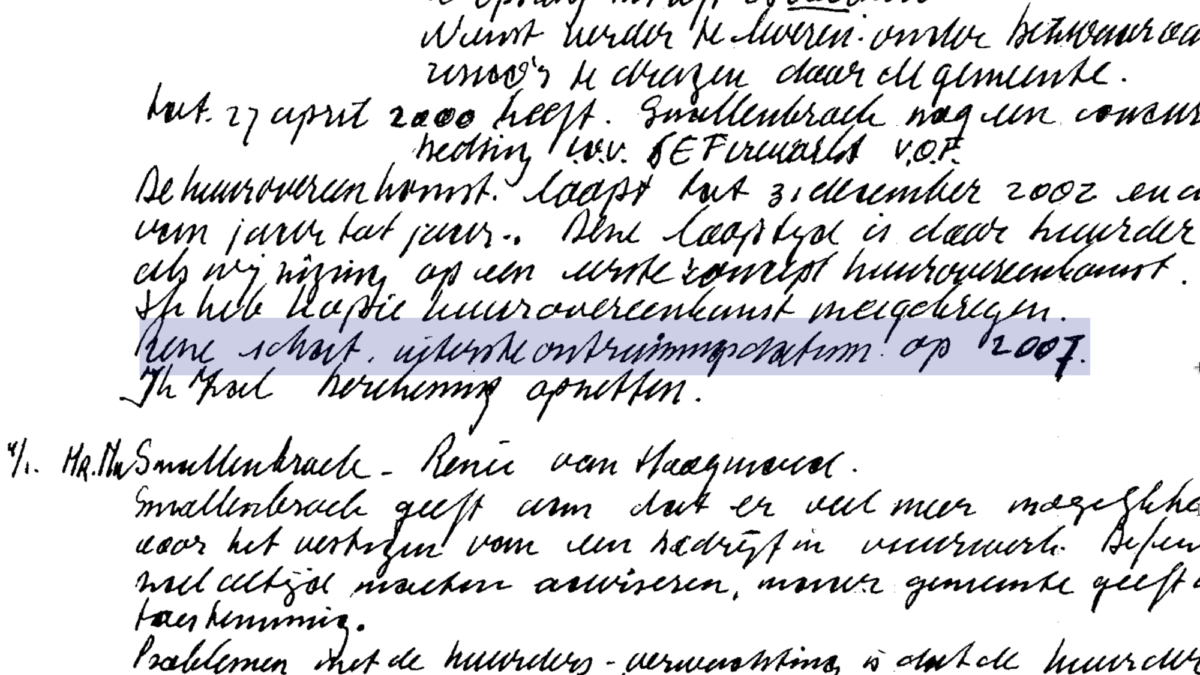 dienst verder te leveren. onder
risico's te dragen door de gemeente.
tot. 27 april 2000 heeft. Smallenbroek nog een
bedrijf i.v.v. SE Firewarks V.O.F.
De huurovereenkomst. loopt tot 31 december 2002 en
van jaar tot jaar.. Deze looptijd is door huurder
als wijziging op een eerste concept huurovereenkomst.
Ik heb kopie huurovereenkomst meegekregen.
Rene schat. uiterste ontruimingsdatum op 2007.
Ik zal berekening opzetten.
4/1. Mr. Smallenbroek - Renée van Haagmoed.
Smallenbroek geeft aan dat er veel meer
voor het vestigen van een bedrijf in vuurwerk.
wel altijd moeten adviseren, maar gemeente geeft
toestemming.
Problemen met de huurders-verwachting is dat de huurder